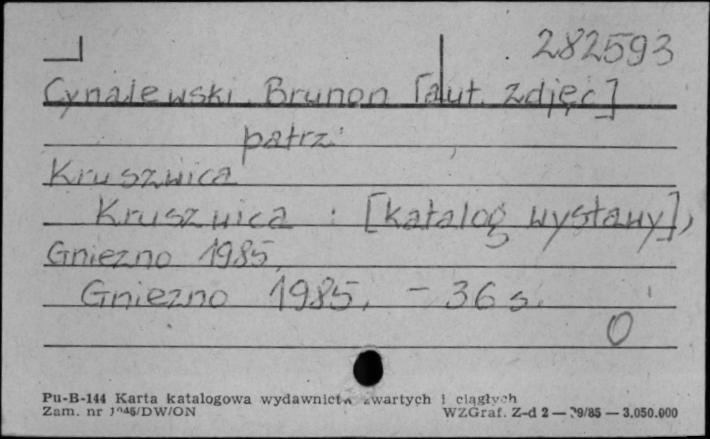 282593
Cynalewski Brunon [aut. zdjęć]
patrz:
Kruszwica
Kruszwica : [katalog wystawy],
Gniezno 1985,
Gniezno 1985. - 36 s.
0
Pu-B-144 Karta katalogowa wydawnictw zwartych i ciągłych
Zam. nr 1046/DW/ON WZGraf. Z-d 2 — 29/85 — 3.050.000